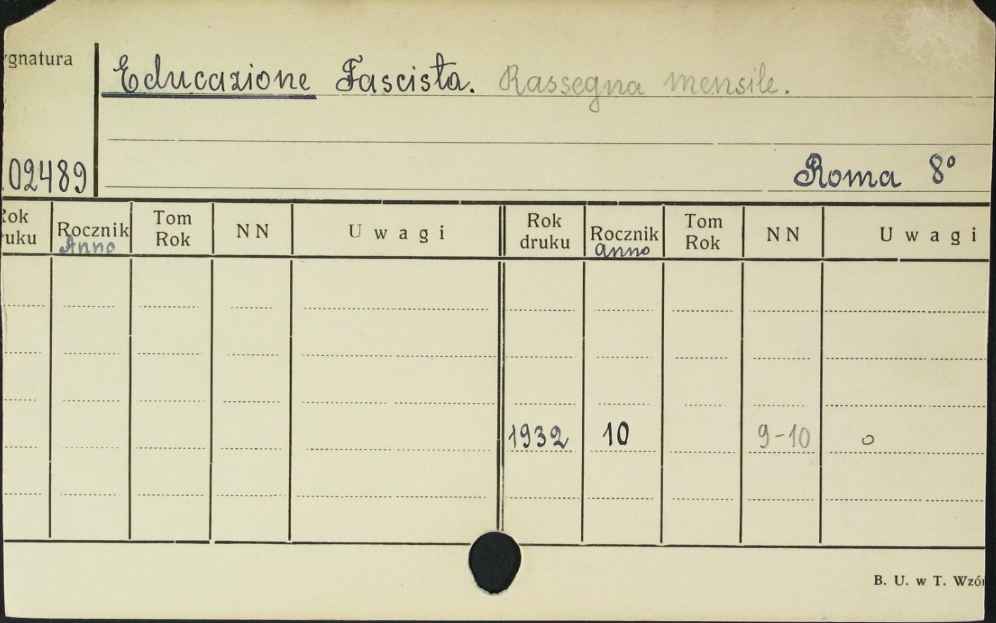 ygnatura
Educazione Fascista. Rassegna mensile.
02489
Roma 8°
Rok druku Rocznik Anno Tom Rok NN Uwagi Rok druku Rocznik anno Tom Rok NN Uwagi
1932 10 9-10 o
B. U. w T. Wzór